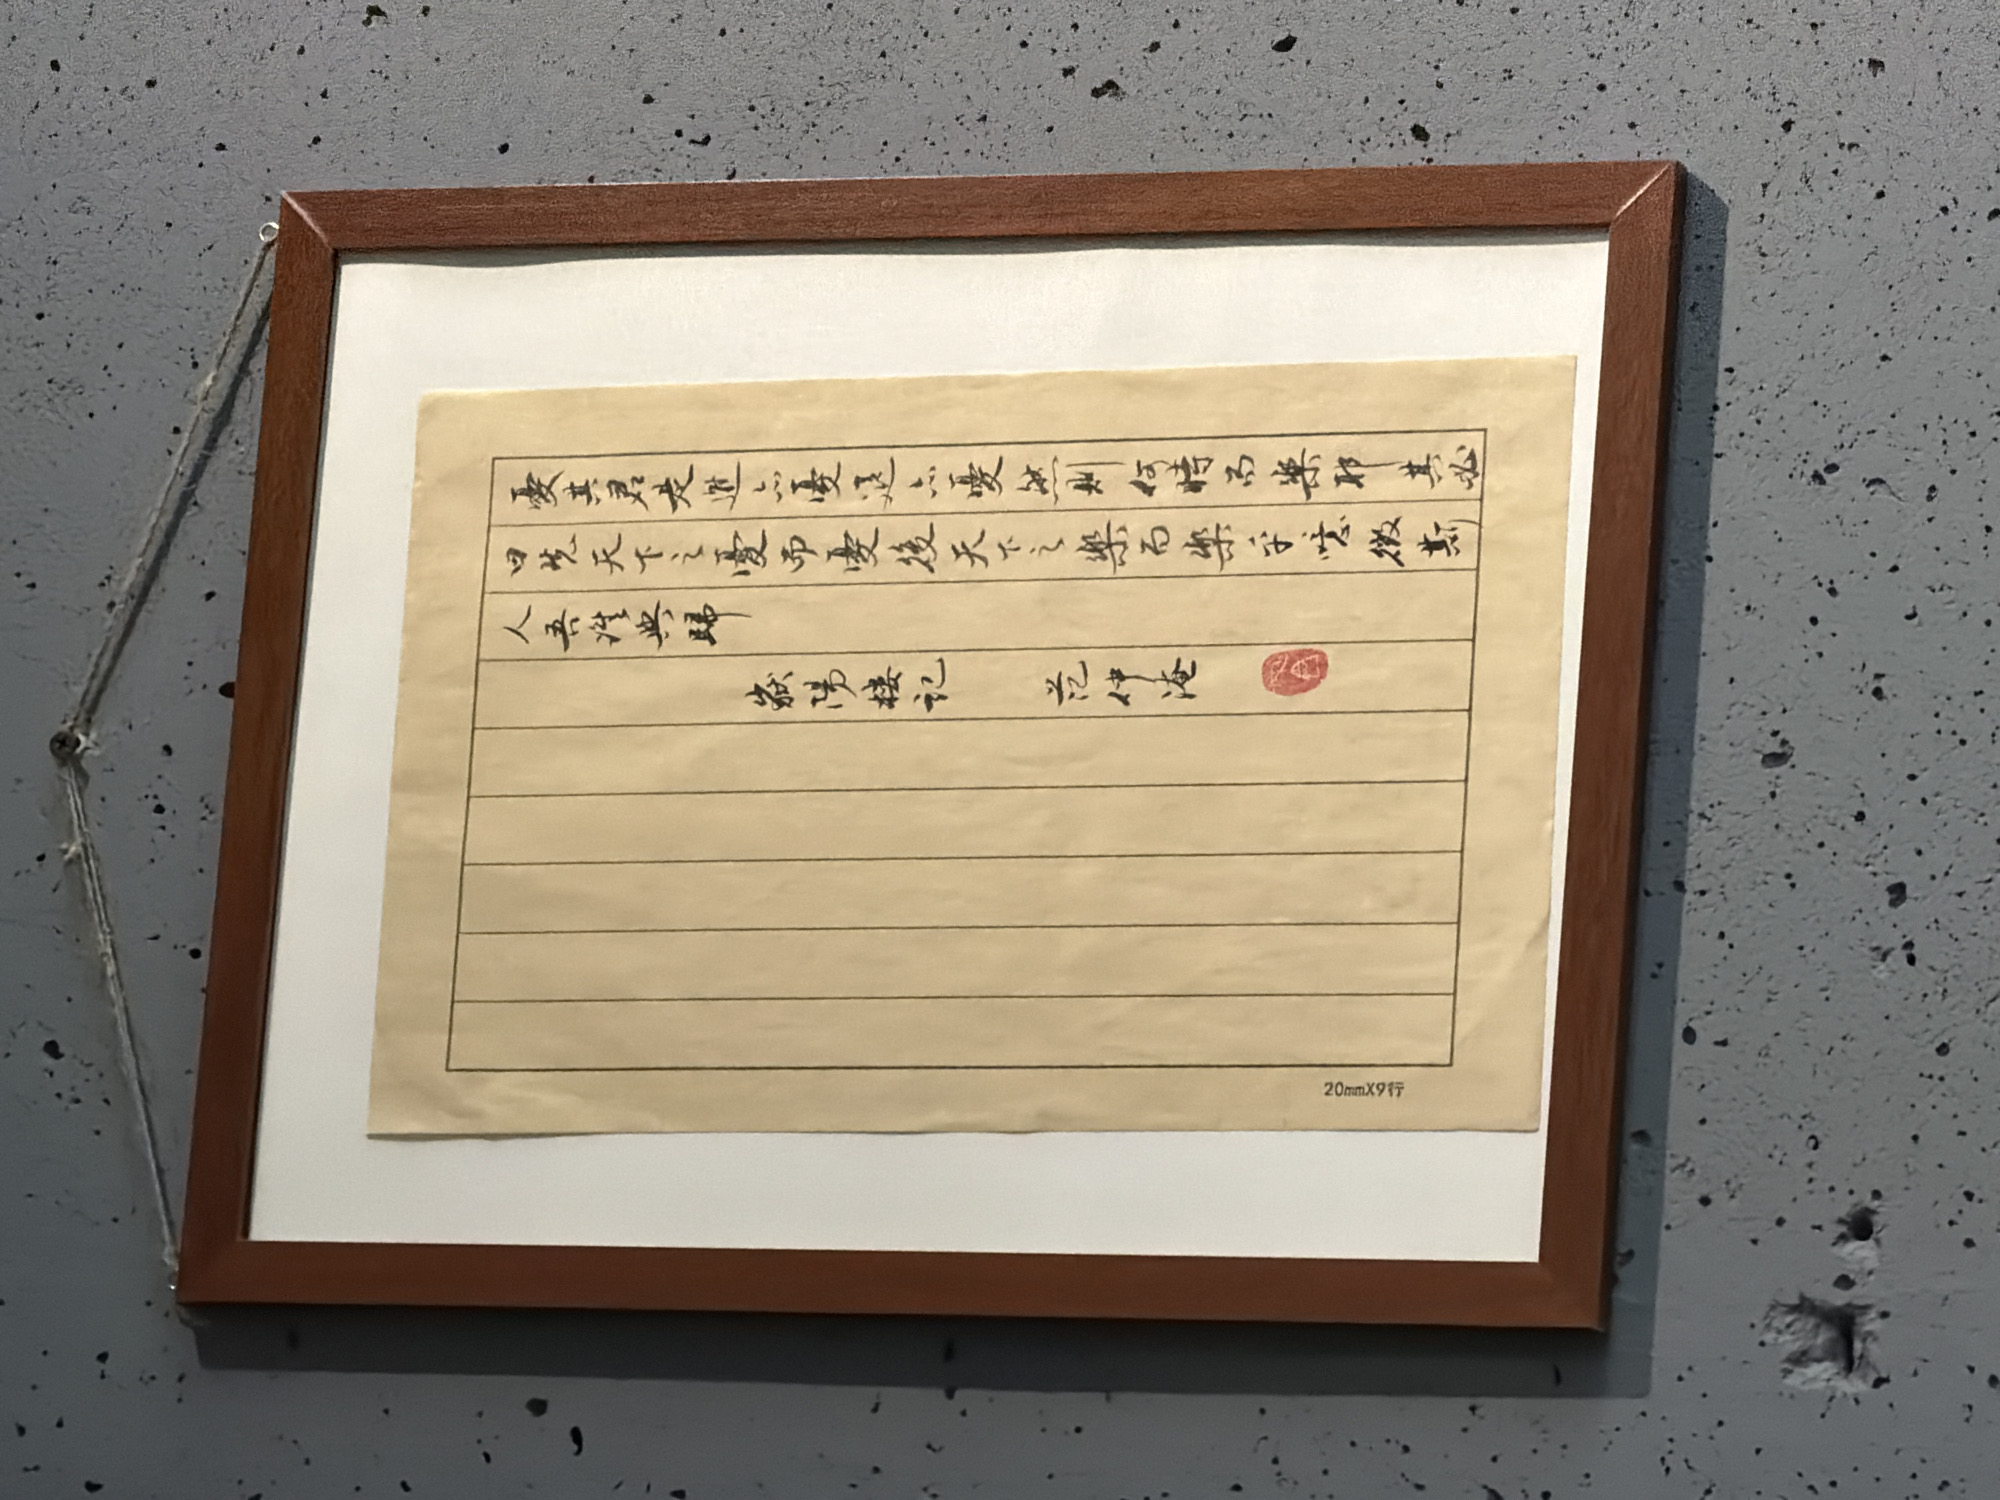 憂其君是進亦憂退亦憂然則何時而樂耶其必
曰先天下之憂而憂後天下之樂而樂乎噫微斯
人吾誰與歸
嶽陽楼記 范仲淹
20mmX9行